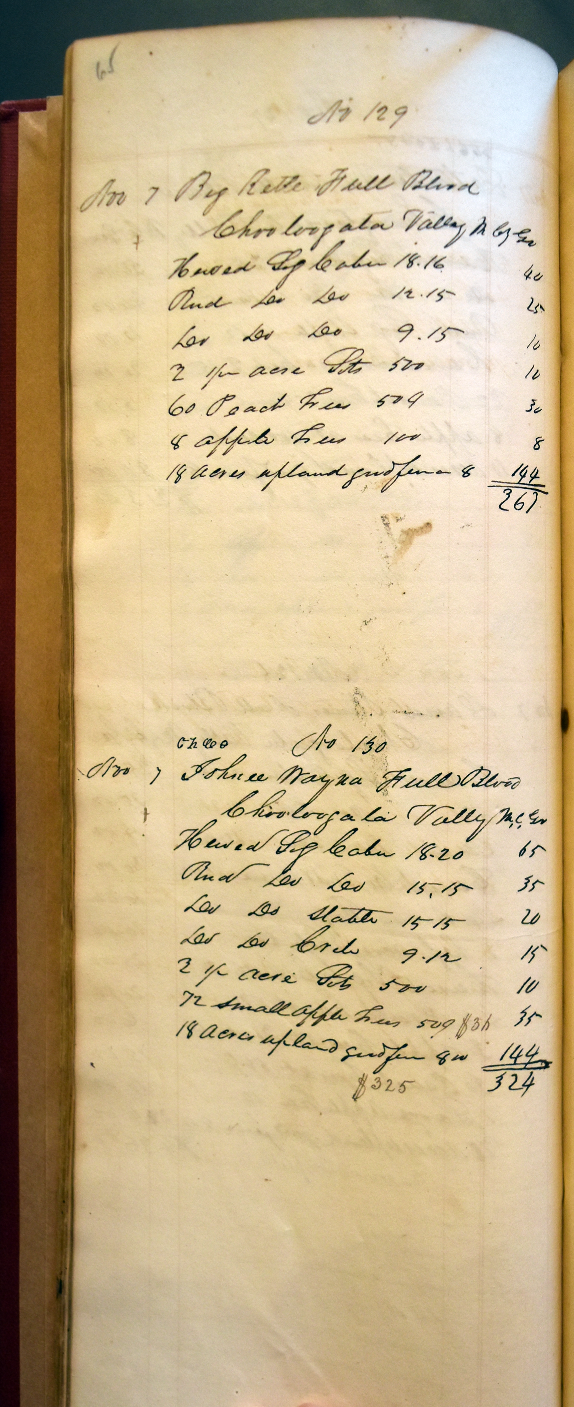 65
No 129
Nov 7 Big Kettle Full Blood
Chooloogata Valley M Cy Ga
Hewed Log Cabin 18.16 40
Rnd Do Do 12.15 25
Do Do Do 9.15 10
2 1/2 acre Lots 500 10
60 Peach Trees 50¢ 30
8 apple Trees 100 8
18 acres upland good fence 8 144
267
No 130
Nov 7 Johnee Wayna Full Blood
Chooloogata Valley M, C, Ga
Hewed Log Cabin 18-20 65
Rnd Do Do 15,15 35
Do Do Stable 15 15 20
Do Do Crib 9.12 15
2 1/2 acre Lots 500 10
72 small apple Trees 50¢ $36 35
18 acres upland good fence 800 144
$325 324